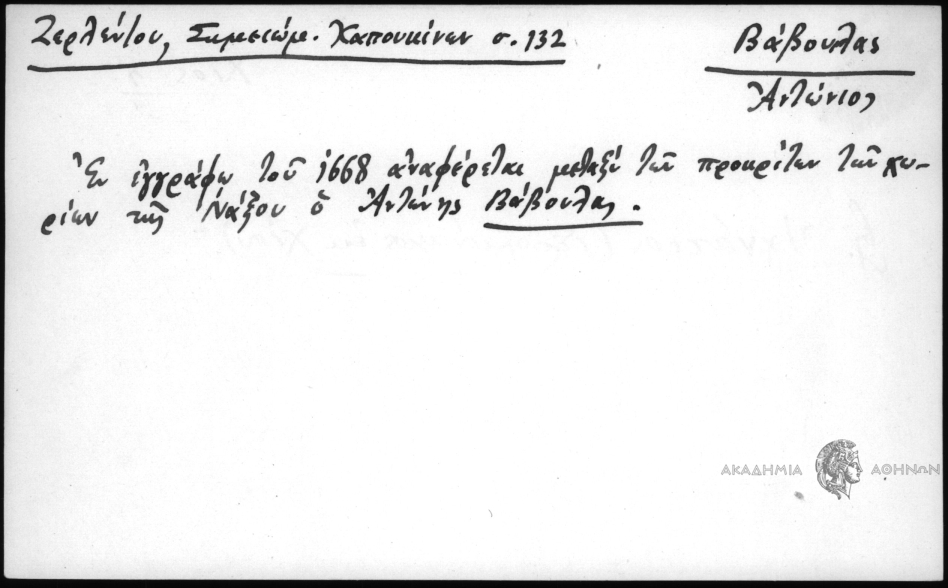 Ζερλέντου, Σημειώμ. Καπουκίνων σ. 132
Βάβουλας
Ἀντώνιος
Ἐν ἐγγράφῳ τοῦ 1668 ἀναφέρεται μεταξὺ τῶν προκρίτων τῶν χω-
ρίων τῆς Νάξου ὁ Ἀντώνης Βάβουλας.
ΑΚΑΔΗΜΙΑ ΑΘΗΝΩΝ